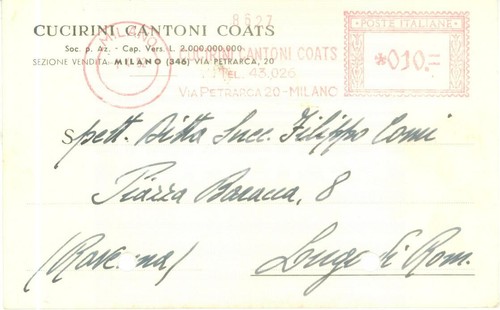 8527
CUCIRINI CANTONI COATS
Soc. p. Az. - Cap. Vers. L. 2.000.000.000
SEZIONE VENDITA: MILANO (346) VIA PETRARCA, 20
MILANO
CUCIRINI CANTONI COATS
TEL. 43.026
VIA PETRARCA 20-MILANO
POSTE ITALIANE
*010.=
Spett. Ditta Succ. Filippo Comi
Piazza Baracca, 8
(Ravenna) Lugo di Rom.